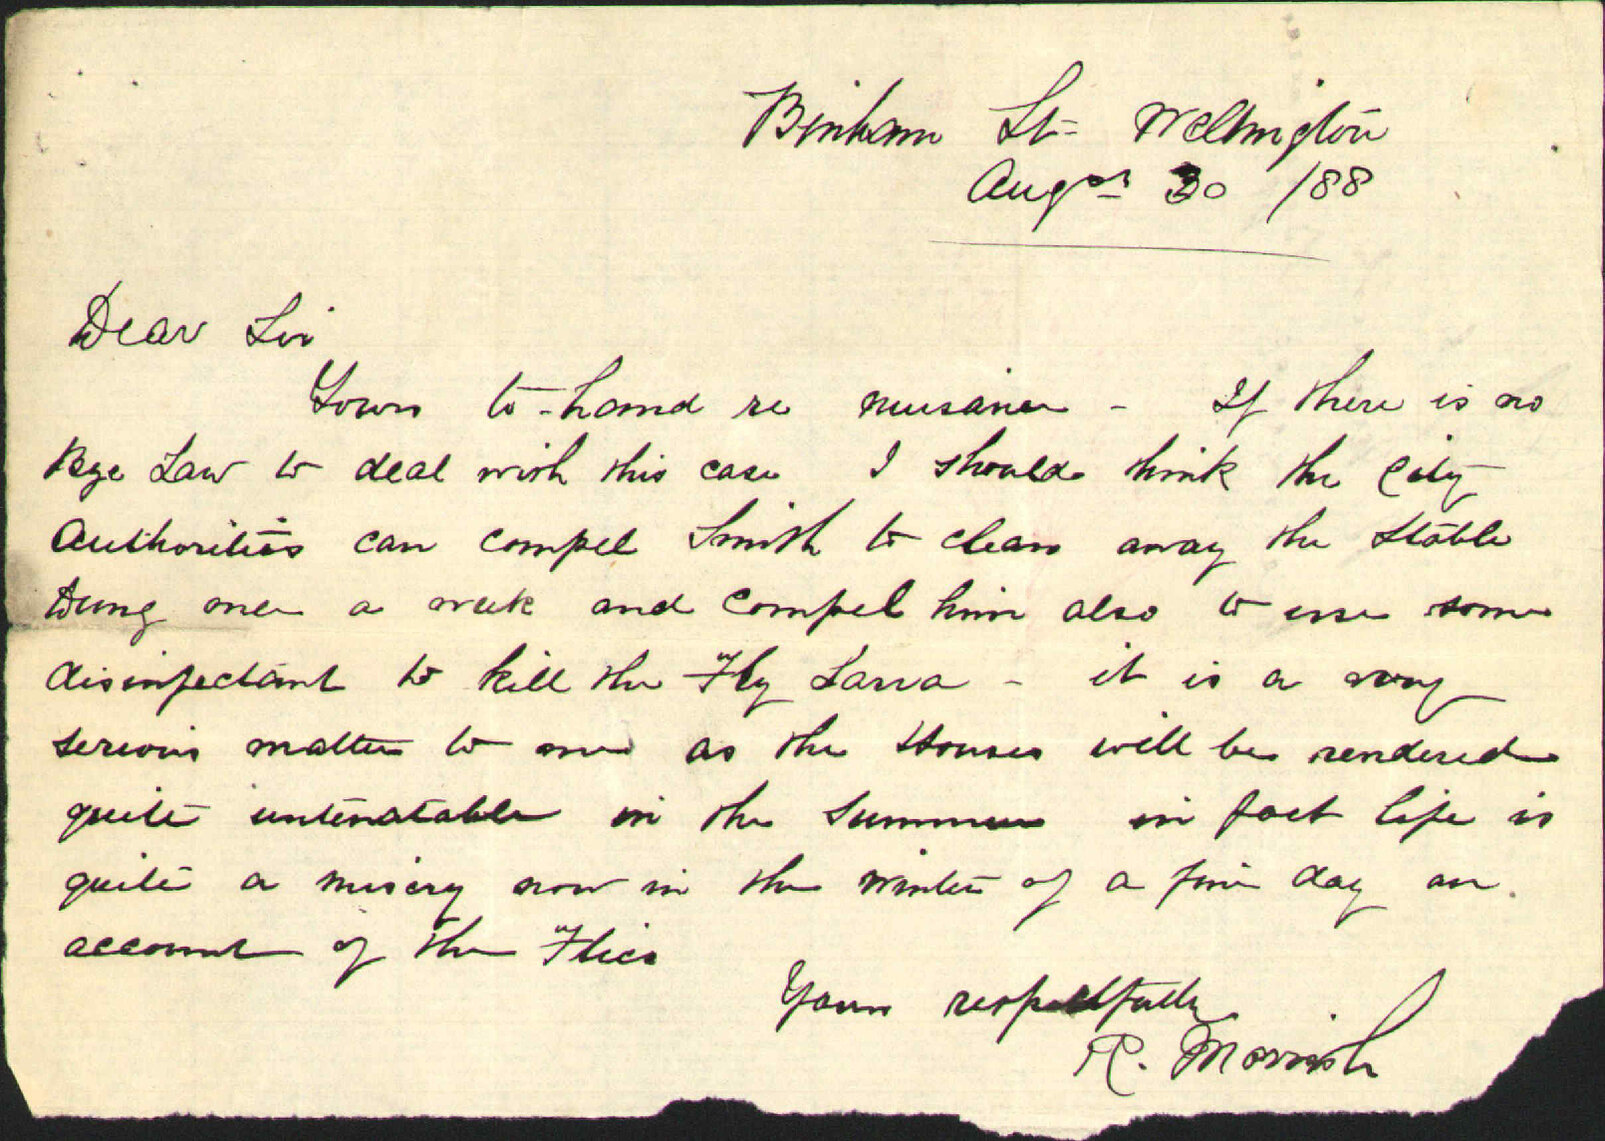 Binham St= Wellington
Augst 30 /88
Dear Sir
Yours to-hand re nuisance - If there is no
Bye Law to deal with this case I should think the City
Authorities can compel Smith to clean away the Stable
Dung once a week and compel him also to use some
disinfectant to kill the Fly Larva - it is a very
serious matter to me as the Houses will be rendered
quite untenatable in the Summer in fact life is
quite a misery now in the winter of a fine day on
account of the Flies
Yours respectfully
R. Morrish